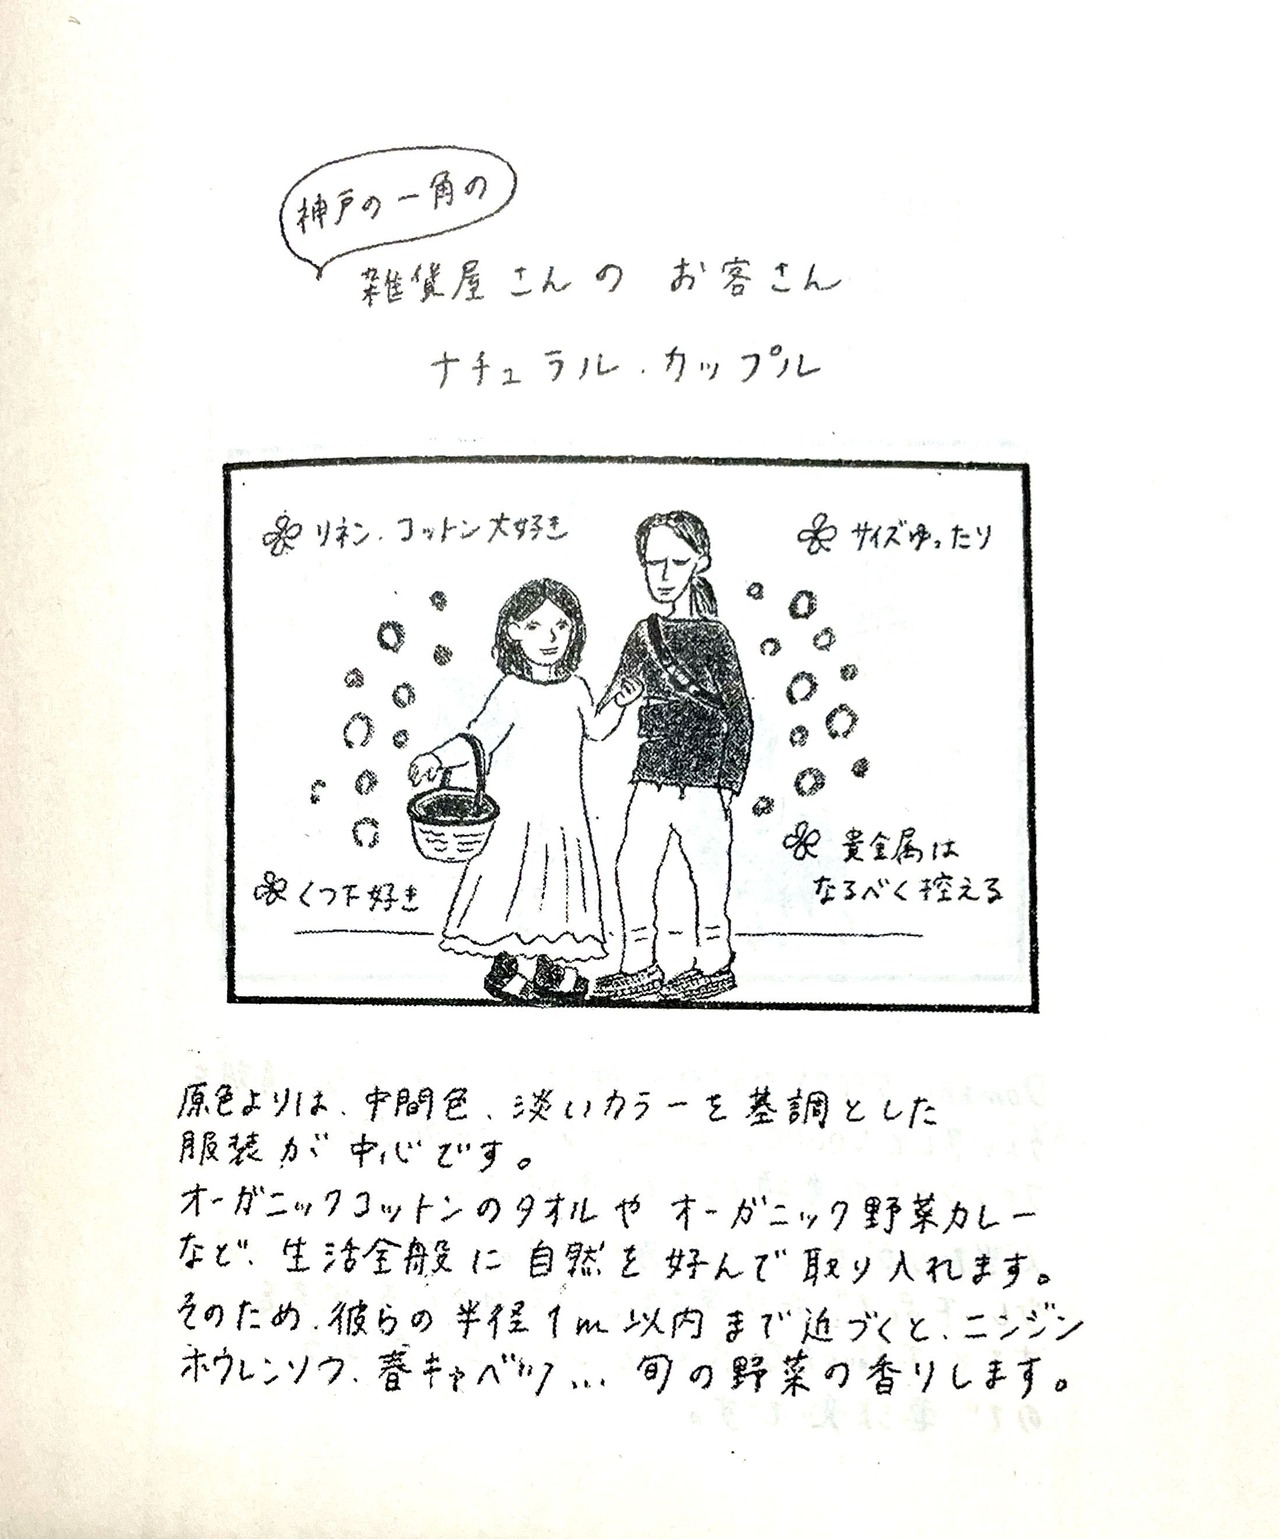 神戸の一角の
雑貨屋さんの お客さん
ナチュラル.カップル
リネン.コットン大好き
サイズゆったり
貴金属は
なるべく控える
くつ下好き
原色よりは、中間色、淡いカラーを基調とした
服装が中心です。
オーガニックコットンのタオルや オーガニック野菜カレー
など、生活全般に自然を好んで取り入れます。
そのため、彼らの半径1m以内まで近づくと、ニンジン
ホウレンソウ、春キャベツ...旬の野菜の香りします。